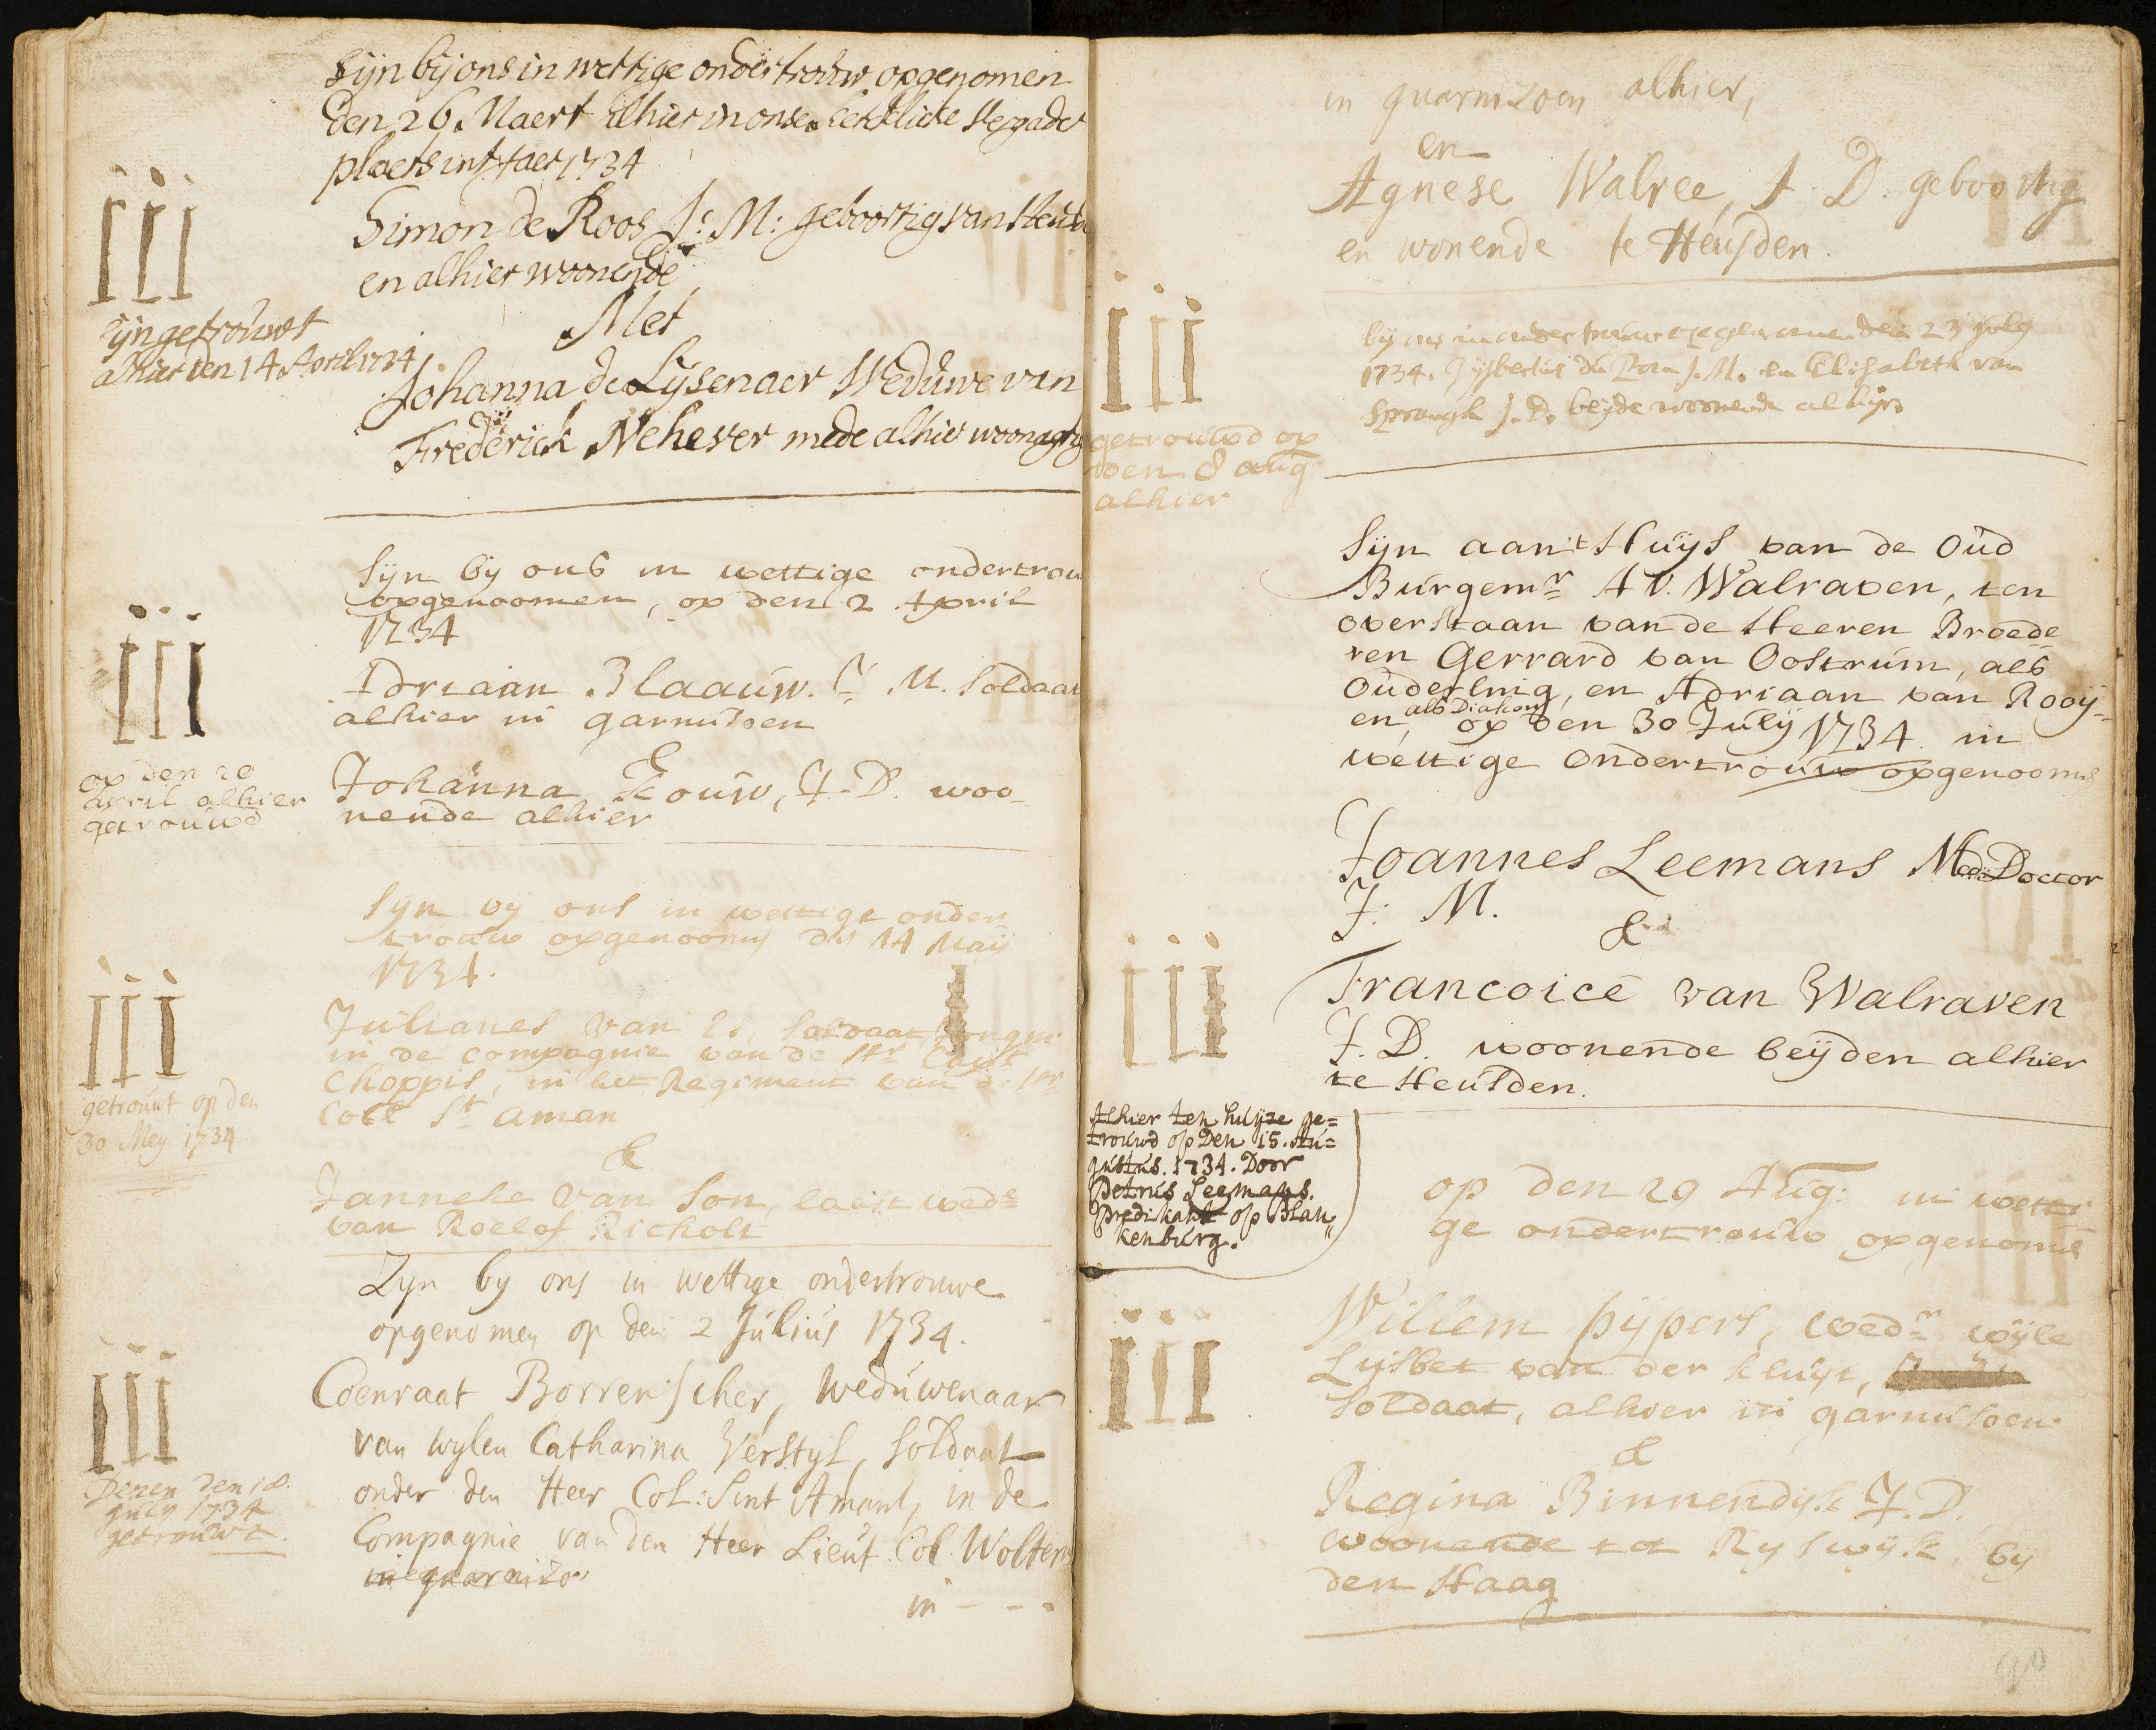 sijn bij ons in wettige ondertrouw opgenomen
den 26. Maert alhier in onse kerklicke vergader
plaets int Jaer 1734
Simon de Roos J: M: geboortig van Heusd
en alhier woonende
Met
Johanna de Lijsenaer Weduwe van
Frederick Nehever mede alhier
III
sijn getrouwt
alhier den 14 April 1734
Sijn bij ons in wettige ondertrou
opgenoomen, op den 2 April
1734
Adriaan Blaauw. J. M. soldaat
alhier in garnisoen
&
Johanna Kouw, J. D. woo-
nende alhier
III
op den 20
april alhier
getrouwd
Sijn bij ons in wettige onder
trouw opgenoomen den 14 Maij
1734.
Julianes van Es, soldaat
in de compagnie van de Hr Capt
Choppit, in het Regiment van de Hr
Coll St aman
&
Janneke van Son, laast wede
van Roelof Richolt
III
getrouwt op den
30 Mey 1734
Zyn by ons in wettige ondertrouwe
opgenomen op den 2 Julius 1734.
Coenraat Borrenscher, weduwenaar
van wylen Catharina Verstyl, soldaat
onder den Heer Col: Sint Amant, in de
Compagnie van den Heer Lieut. Col. Wolters
in guarnizo
in - - -
III
Dezen den 18.
july 1734
getrouwt.
in guarnizoen alhier,
en
Agnese Walree, J. D. geboortig
en wonende te Heusden.
bij ons in ondertrouw opgenomen den 23 july
1734. Gijsbertus du Pon J. M. en Elisabeth van
Sprangh J. D. beyde woonende alhier
III
getrouwd op
den 8 aug
alhier
Sijn aan 't Huijs van de Oud
Burgemr A V. Walraven, ten
overstaan van de Heeren Broede
ren Gerrard van Oostrum, als
Ouderling, en Adriaan van Rooij-
en, als Diakon, op den 30 Julij 1734 in
wettige Ondertrouw opgenoomen
Joannes Leemans Med: Doctor
J: M.
&
Francoice van Walraven
J. D. woonende beijden alhier
te Heusden.
III
Alhier ten huijze ge=
trouwd op Den 15. Au=
gustus. 1734. Door
Petrus Leemans.
Predikant op Blan"
kenburg.
op den 29 Aug: in wetti
ge ondertrouw opgenomen
Willem pijpers, wedr wijle
Lijsbet van der kluijt,
Soldaat, alhier in garnisoen.
&
Regina Binnendijk J. D.
woonende tot Ryswijk, bij
den Haag
III
90